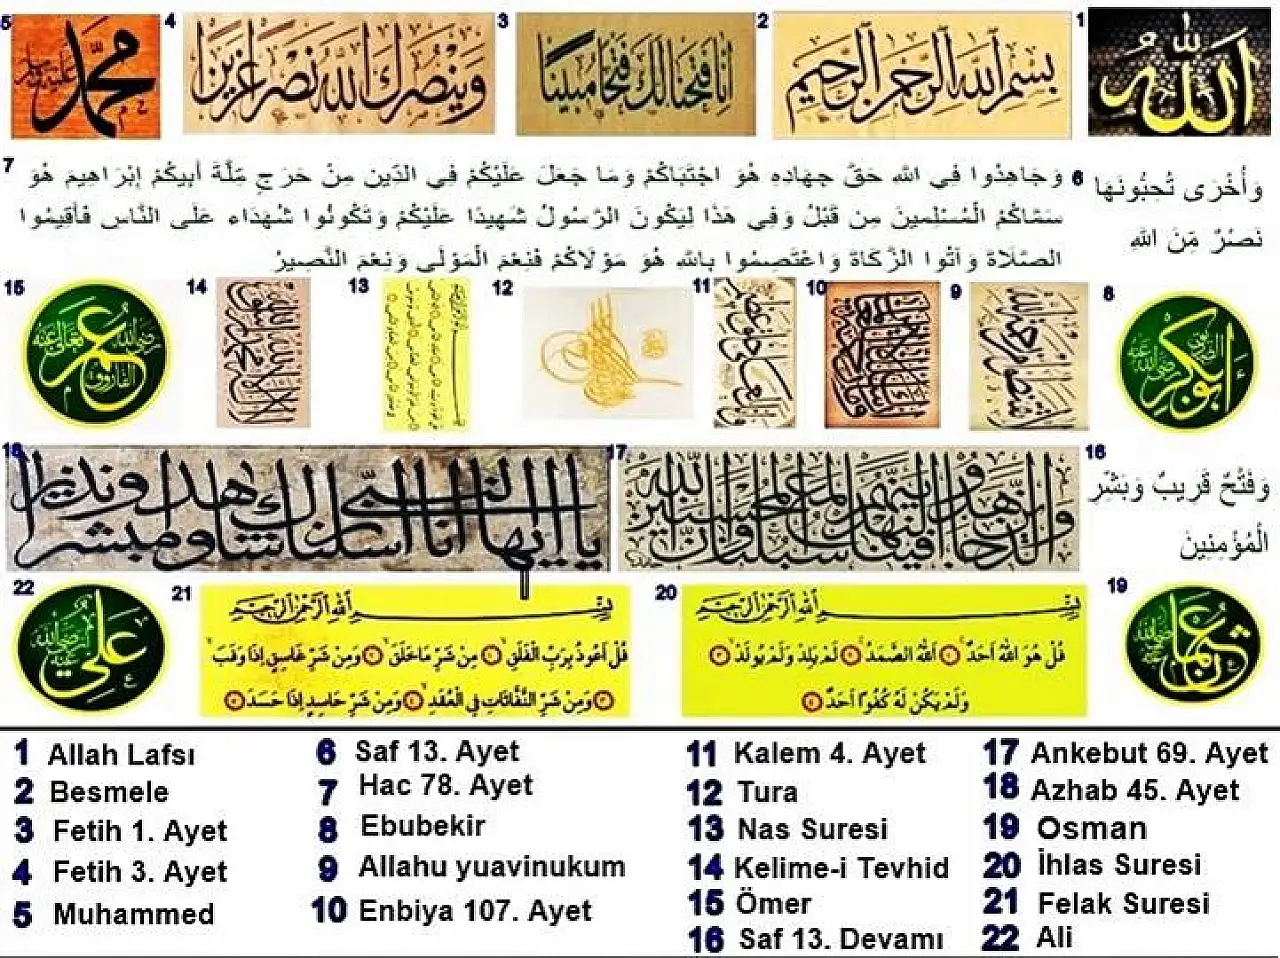 5
4
3
2
1
محمد
وينصرك الله نصرا عزيزا
انا فتحنا لك فتحا مبينا
بسم الله الرحمن الرحيم
الله
7
وَجَاهِدُوا فِي اللَّهِ حَقَّ جِهَادِهِ هُوَ اجْتَبَاكُمْ وَمَا جَعَلَ عَلَيْكُمْ فِي الدِّينِ مِنْ حَرَجٍ مِّلَّةَ أَبِيكُمْ إِبْرَاهِيمَ هُوَ
سَمَّاكُمُ الْمُسْلِمينَ مِن قَبْلُ وَفِي هَذَا لِيَكُونَ الرَّسُولُ شَهِيدًا عَلَيْكُمْ وَتَكُونُوا شُهَدَاء عَلَى النَّاسِ فَأَقِيمُوا
الصَّلَاةَ وَآتُوا الزَّكَاةَ وَاعْتَصِمُوا بِاللَّهِ هُوَ مَوْلَاكُمْ فَنِعْمَ الْمَوْلَى وَنِعْمَ النَّصِيرُ
6
وَأُخْرَى تُحِبُّونَهَا
نَصْرٌ مِّنَ اللَّهِ
15
14
13
12
11
10
9
8
عمر الفاروق رضي الله تعالى عنه
ابو بكر
18
17
16
يا ايها النبي انا ارسلناك شاهدا ومبشرا ونذيرا
وَفَتْحٌ قَرِيبٌ وَبَشِّرِ
الْمُؤْمِنِينَ
22
21
20
19
علي رضي الله عنه
بسم الله الرحمن الرحيم
قُلْ اَعُوذُ بِرَبِّ الْفَلَقِ مِنْ شَرِّ مَا خَلَقَ وَمِنْ شَرِّ غَاسِقٍ اِذَا وَقَبَ
وَمِنْ شَرِّ النَّفَّاثَاتِ فِي الْعُقَدِ وَمِنْ شَرِّ حَاسِدٍ اِذَا حَسَدَ
بسم الله الرحمن الرحيم
قُلْ هُوَ اللّٰهُ اَحَدٌ اَللّٰهُ الصَّمَدُ لَمْ يَلِدْ وَلَمْ يُولَدْ
وَلَمْ يَكُنْ لَهُ كُفُوًا اَحَدٌ
عثمان
1 Allah Lafsı
2 Besmele
3 Fetih 1. Ayet
4 Fetih 3. Ayet
5 Muhammed
6 Saf 13. Ayet
7 Hac 78. Ayet
8 Ebubekir
9 Allahu yuavinukum
10 Enbiya 107. Ayet
11 Kalem 4. Ayet
12 Tura
13 Nas Suresi
14 Kelime-i Tevhid
15 Ömer
16 Saf 13. Devamı
17 Ankebut 69. Ayet
18 Azhab 45. Ayet
19 Osman
20 İhlas Suresi
21 Felak Suresi
22 Ali